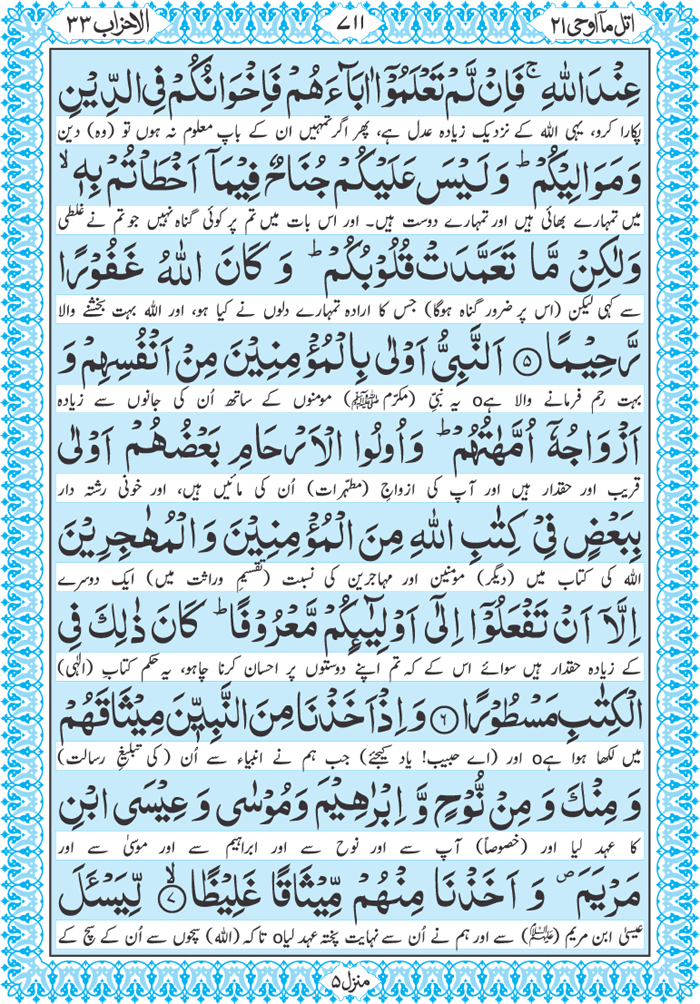 اتل مآ اوحی ۲۱ ۷۱۱ الاحزاب ۳۳
عِنْدَ اللّٰهِ ۚ فَاِنْ لَّمْ تَعْلَمُوْۤا اٰبَآءَهُمْ فَاِخْوَانُكُمْ فِی الدِّیْنِ
پکارا کرو، یہی اللہ کے نزدیک زیادہ عدل ہے، پھر اگر تمہیں ان کے باپ معلوم نہ ہوں تو (وہ) دین
وَ مَوَالِیْكُمْ ؕ وَ لَیْسَ عَلَیْكُمْ جُنَاحٌ فِیْمَاۤ اَخْطَاْتُمْ بِهٖ ۙ
میں تمہارے بھائی ہیں اور تمہارے دوست ہیں۔ اور اس بات میں تم پر کوئی گناہ نہیں جو تم نے غلطی
وَلٰكِنْ مَّا تَعَمَّدَتْ قُلُوْبُكُمْ ؕ وَ كَانَ اللّٰهُ غَفُوْرًا
سے کہی لیکن (اس پر ضرور گناہ ہوگا) جس کا ارادہ تمہارے دلوں نے کیا ہو، اور اللہ بہت بخشنے والا
رَّحِیْمًا ۝۵ اَلنَّبِیُّ اَوْلٰی بِالْمُؤْمِنِیْنَ مِنْ اَنْفُسِهِمْ وَ
بہت رحم فرمانے والا ہے o یہ نبیِّ (مکرّم ﷺ) مومنوں کے ساتھ اُن کی جانوں سے زیادہ
اَزْوَاجُهٗۤ اُمَّهٰتُهُمْ ؕ وَ اُولُوا الْاَرْحَامِ بَعْضُهُمْ اَوْلٰی
قریب اور حقدار ہیں اور آپ کی ازواجِ (مطہّرات) اُن کی مائیں ہیں، اور خونی رشتہ دار
بِبَعْضٍ فِیْ كِتٰبِ اللّٰهِ مِنَ الْمُؤْمِنِیْنَ وَ الْمُهٰجِرِیْنَ
اللہ کی کتاب میں (دیگر) مومنین اور مہاجرین کی نسبت (تقسیمِ وراثت میں) ایک دوسرے
اِلَّاۤ اَنْ تَفْعَلُوْۤا اِلٰۤی اَوْلِیٰٓىِٕكُمْ مَّعْرُوْفًا ؕ كَانَ ذٰلِكَ فِی
کے زیادہ حقدار ہیں سوائے اس کے کہ تم اپنے دوستوں پر احسان کرنا چاہو، یہ حکم کتابِ (الٰہی)
الْكِتٰبِ مَسْطُوْرًا ۝۶ وَ اِذْ اَخَذْنَا مِنَ النَّبِیّٖنَ مِیْثَاقَهُمْ
میں لکھا ہوا ہے o اور (اے حبیب! یاد کیجئے) جب ہم نے انبیاء سے اُن (کی تبلیغِ رسالت)
وَ مِنْكَ وَ مِنْ نُّوْحٍ وَّ اِبْرٰهِیْمَ وَ مُوْسٰی وَ عِیْسَی ابْنِ
کا عہد لیا اور (خصوصاً) آپ سے اور نوح سے اور ابراہیم سے اور موسیٰ سے اور
مَرْیَمَ ۪ وَ اَخَذْنَا مِنْهُمْ مِّیْثَاقًا غَلِیْظًا ۙ۝۷ لِّیَسْـَٔلَ
عیسیٰ ابن مریم (علیہم السلام) سے اور ہم نے اُن سے نہایت پختہ عہد لیا o تاکہ (اللہ) سچوں سے اُن کے سچ کے
منزل ۵